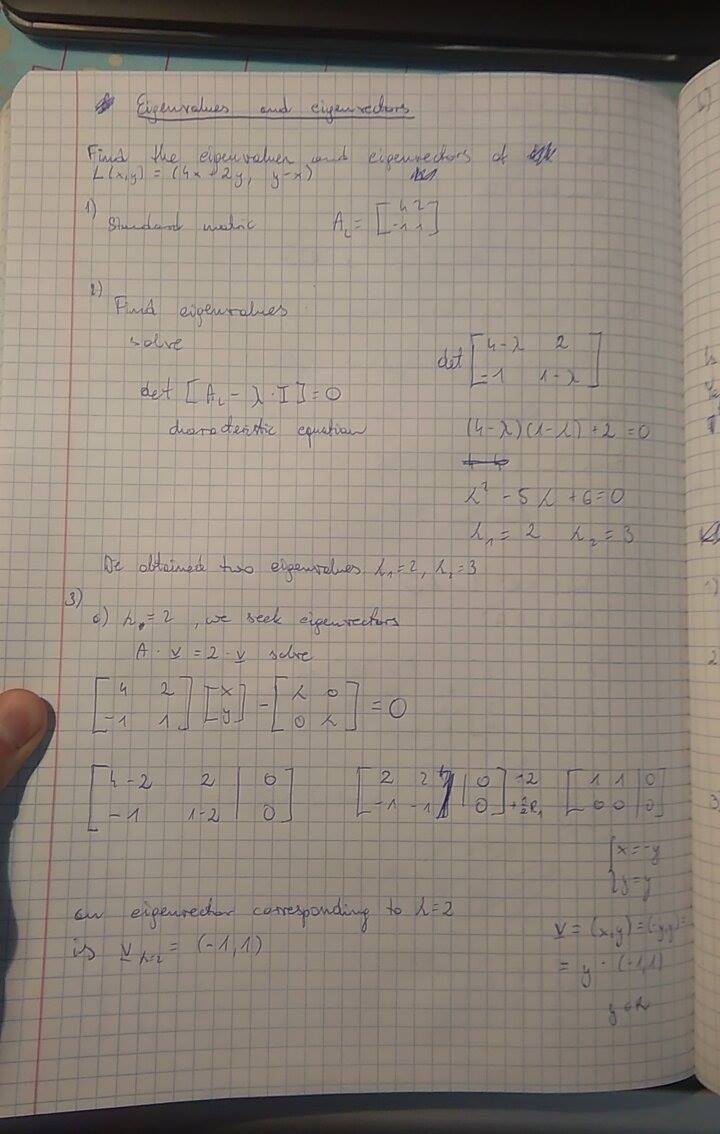 Eigenvalues and eigenvectors
Find the eigenvalues and eigenvectors of
L(x,y) = (4x + 2y, y-x)
1) Standard matric A_L = [4 2; -1 1]
2) Find eigenvalues
solve
det [A_L - λ·I] = 0
characteristic equation
det [4-λ 2; -1 1-λ]
(4-λ)(1-λ) + 2 = 0
λ² - 5λ + 6 = 0
λ₁ = 2 λ₂ = 3
We obtained two eigenvalues λ₁=2, λ₂=3
3)
a) λ₁=2, we seek eigenvectors
A · v = 2 · v solve
[4 2; -1 1] [x; y] - [λ 0; 0 λ] = 0
[4-2 2 | 0; -1 1-2 | 0] [2 2 | 0; -1 -1 | 0] ÷2 +½R₁ [1 1 | 0; 0 0 | 0]
{x=-y
{y=y
an eigenvector corresponding to λ=2
is v λ=2 = (-1,1)
v = (x,y) = (-y,y) =
= y · (-1,1)
y ∈ R